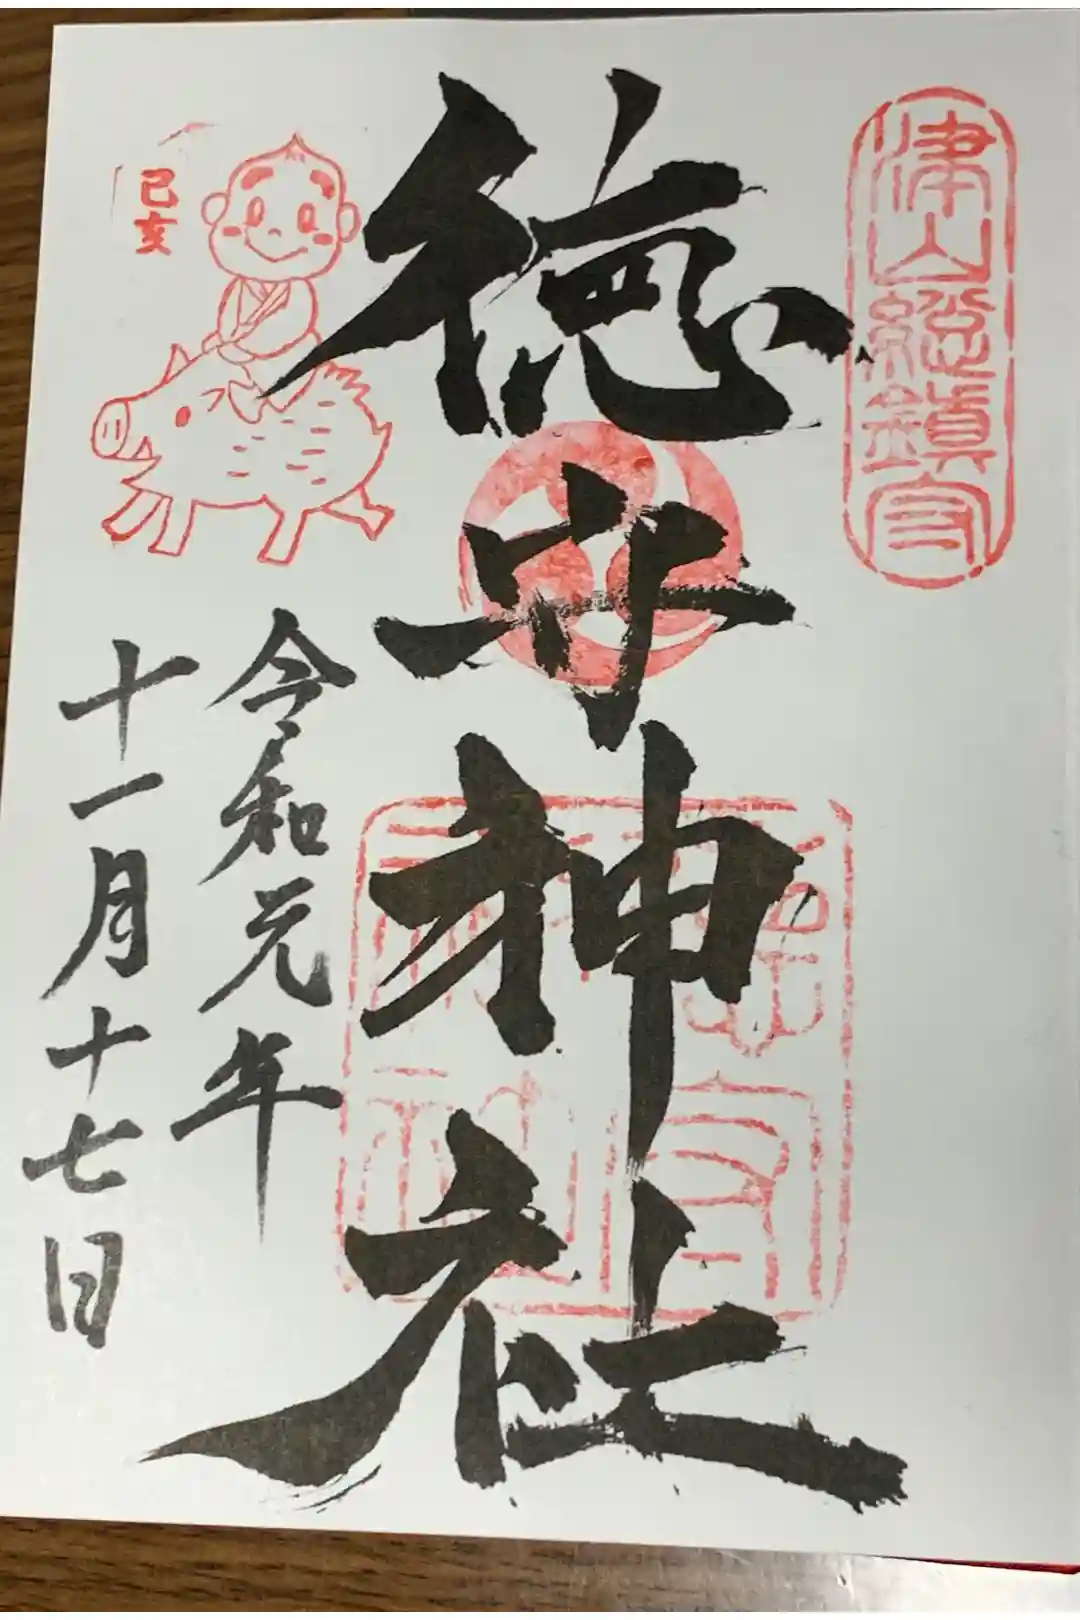 津山総鎮守
徳守神社
令和元年
十一月十七日
己亥